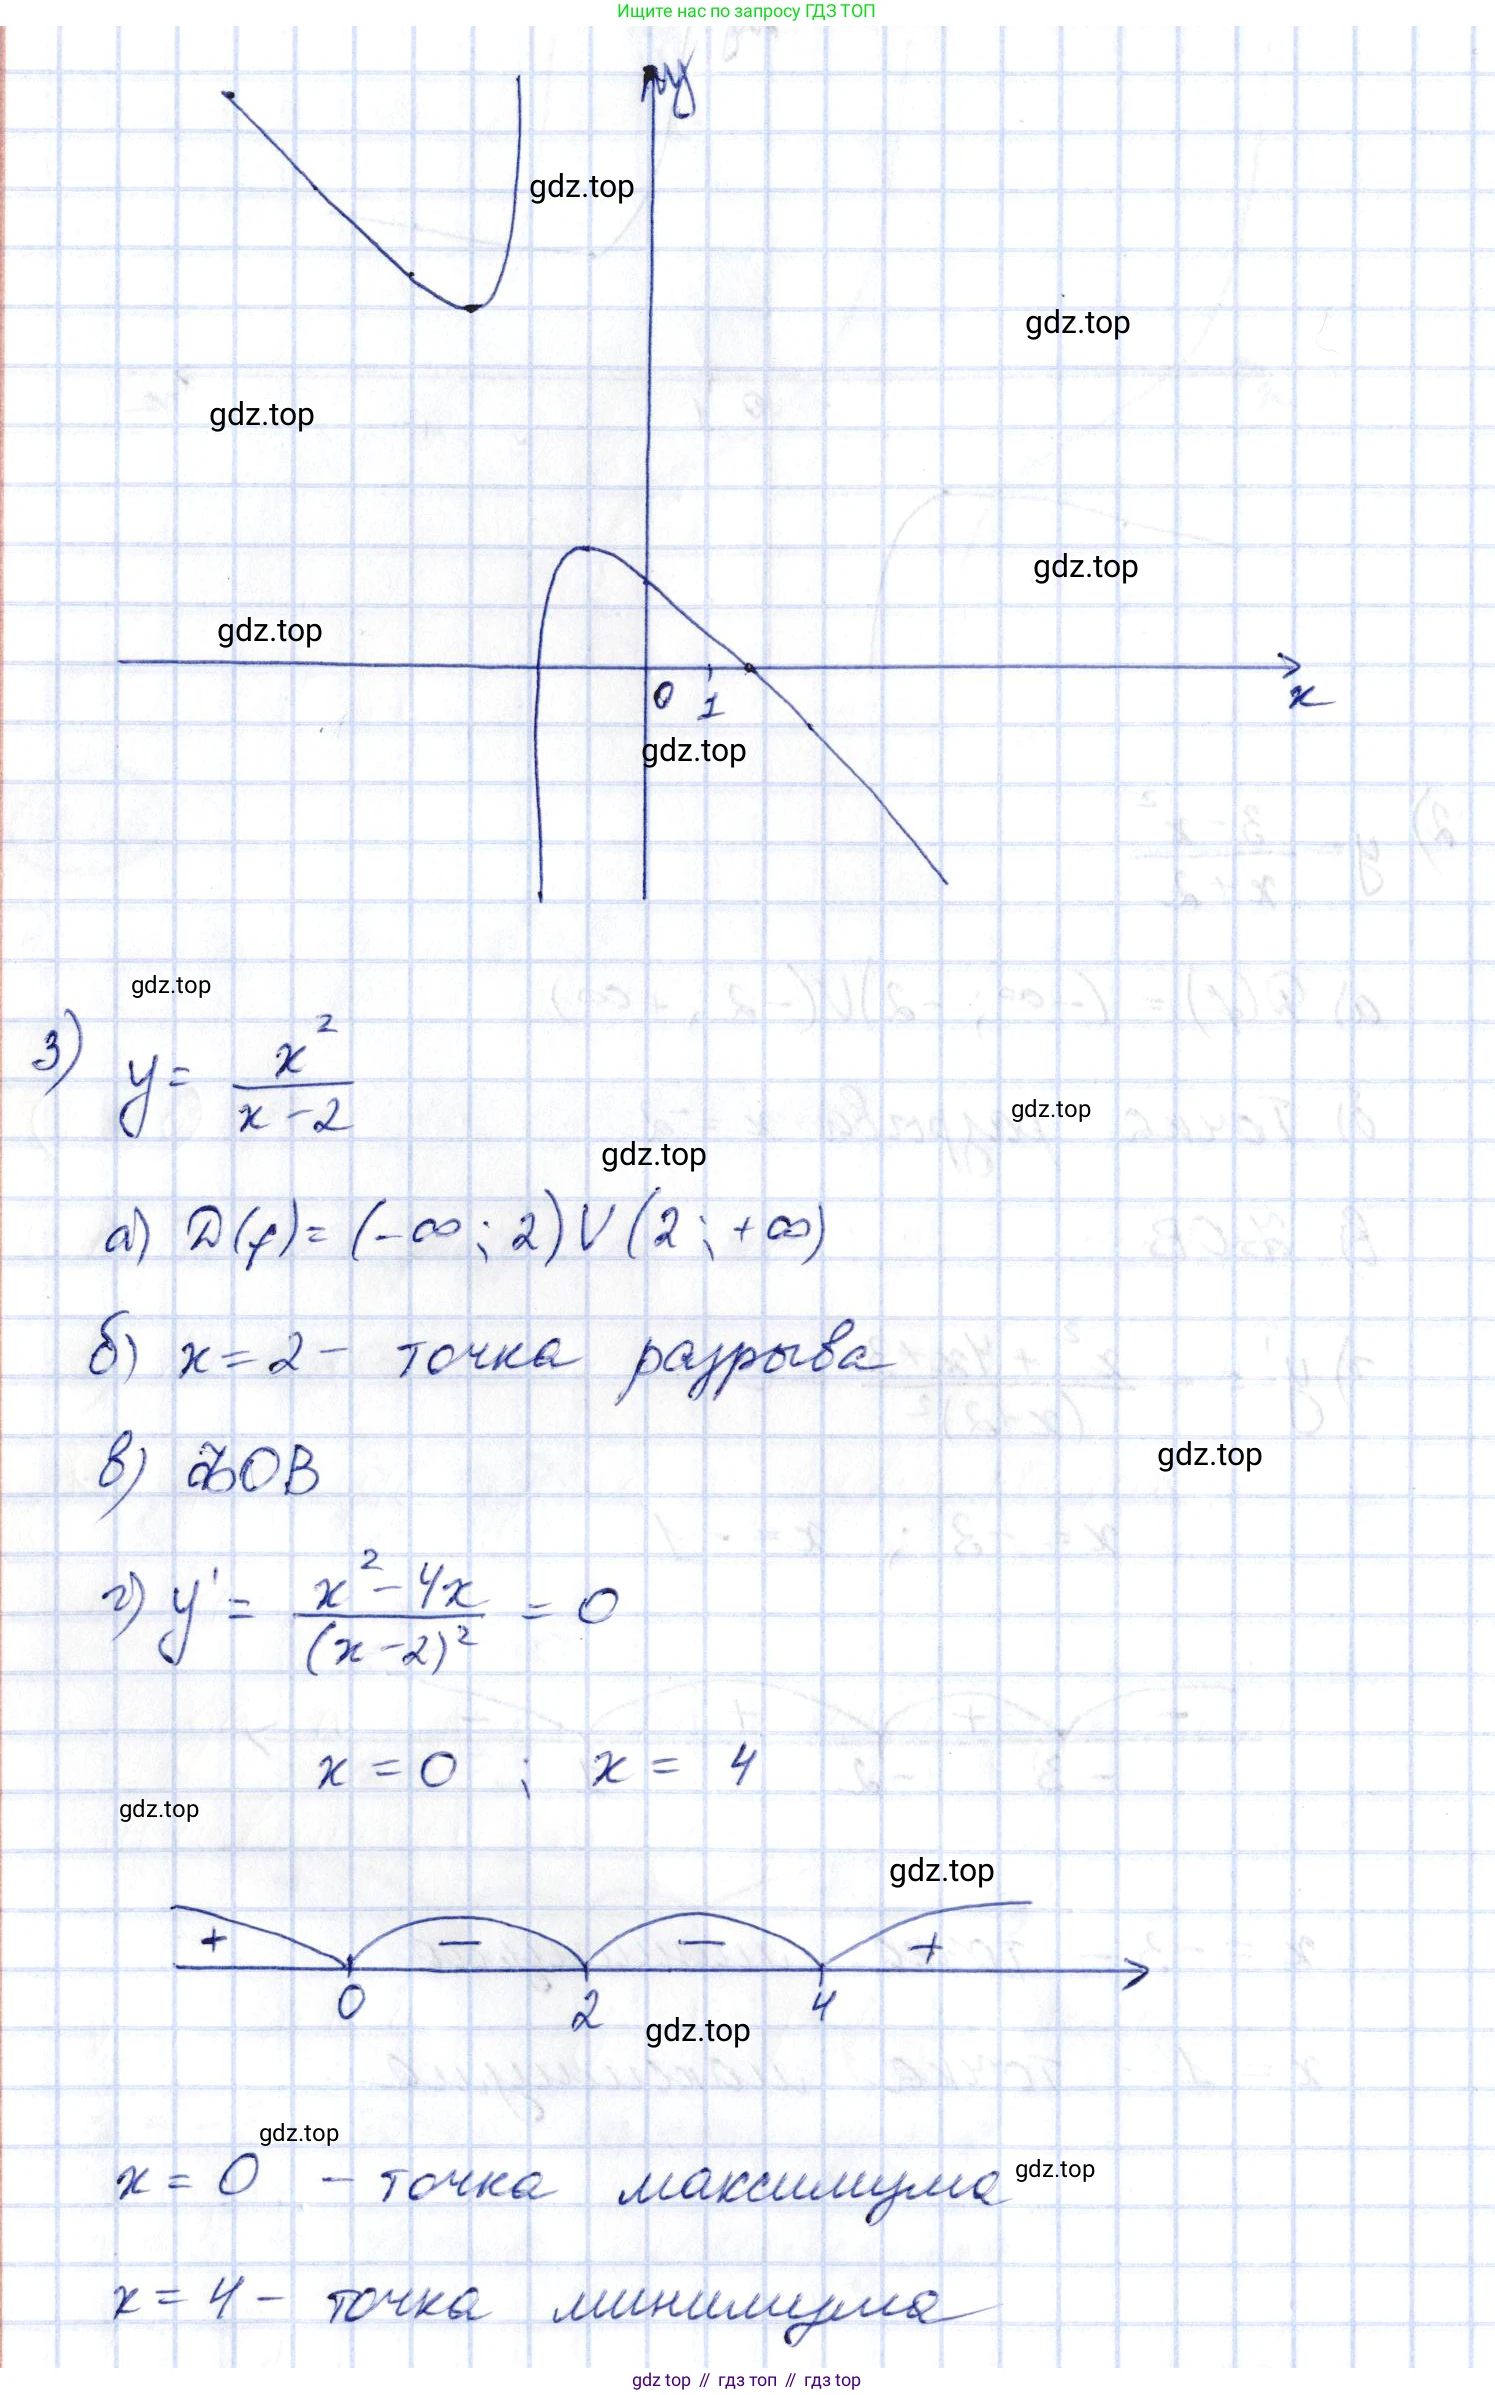 Ищите нас по запросу ГДЗ ТОП
y
gdz.top
gdz.top
gdz.top
gdz.top
gdz.top
0 1
x
gdz.top
gdz.top
3) y = x² / (x - 2)
gdz.top
gdz.top
а) D(f) = (-∞; 2) ∪ (2; +∞)
б) x = 2 - точка разрыва
в) ЗОВ
gdz.top
г) y' = (x² - 4x) / (x - 2)² = 0
x = 0 ; x = 4
gdz.top
gdz.top
+ — — +
0 2 4
gdz.top
gdz.top
x = 0 - точка максимума
gdz.top
x = 4 - точка минимума
gdz top // гдз топ // гдз top